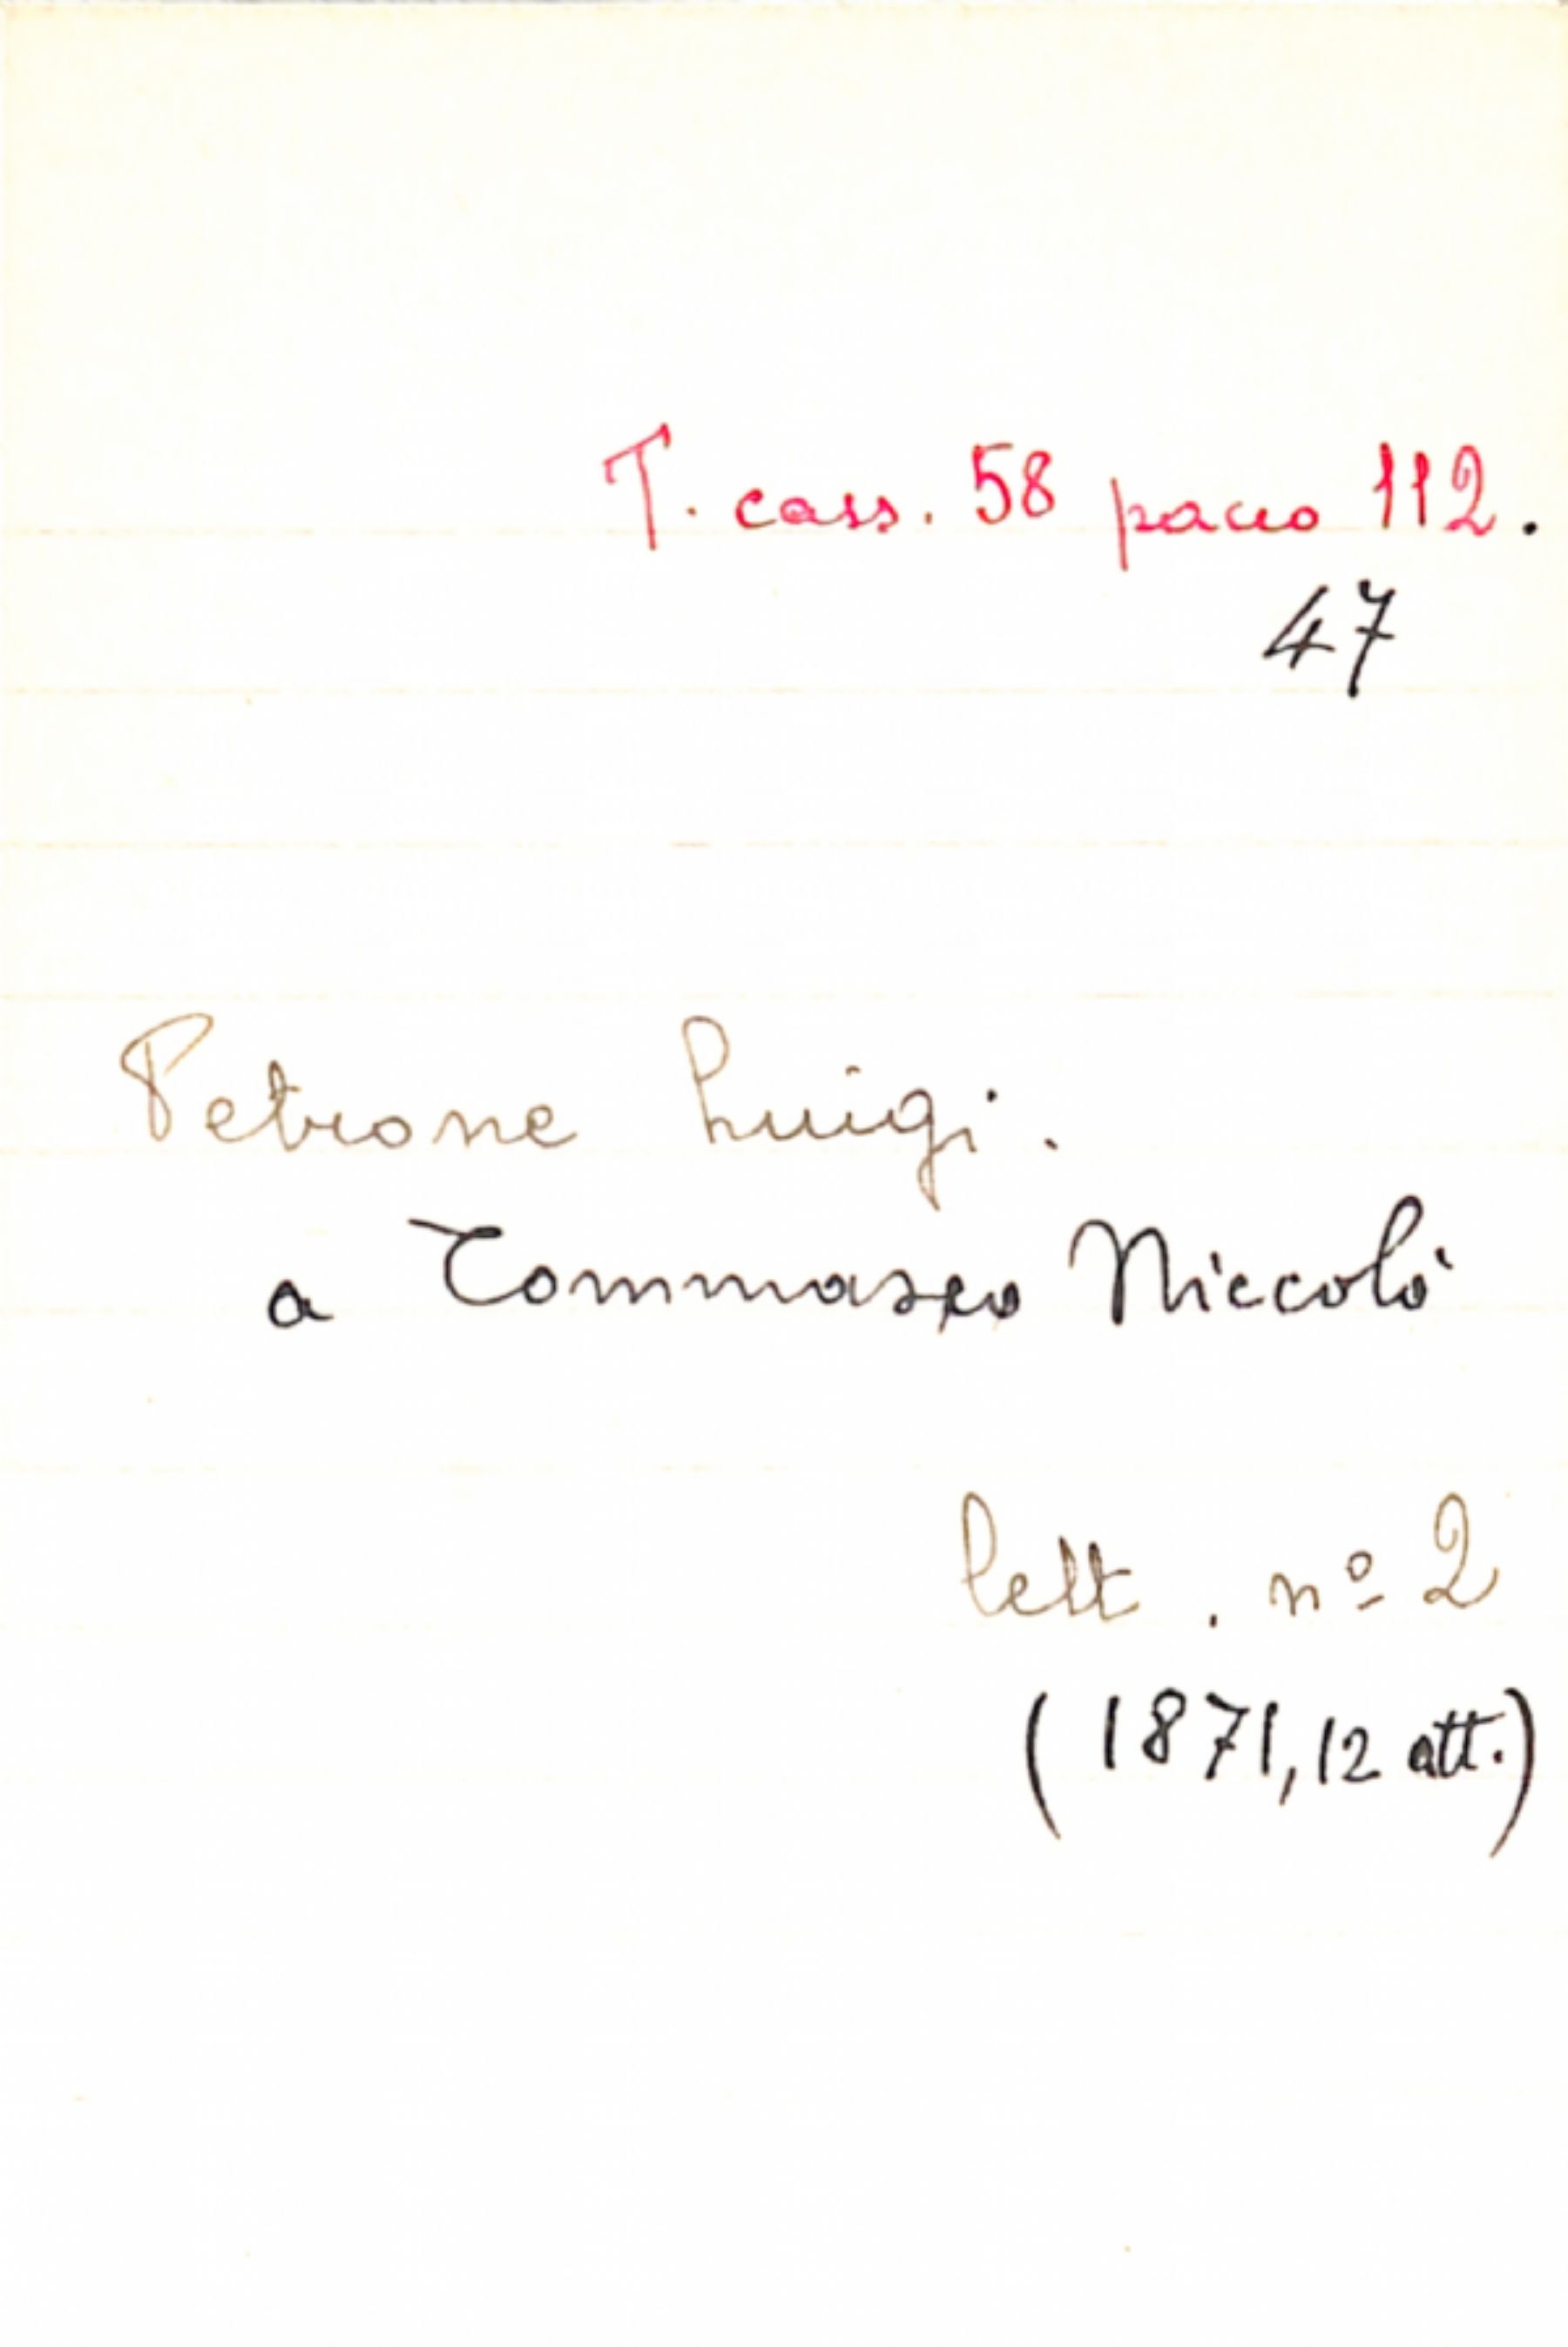 T. cass. 58 pacco 112.
47
Petrone Luigi.
a Tommaseo Niccolò
lett. nº 2
(1871, 12 ott.)